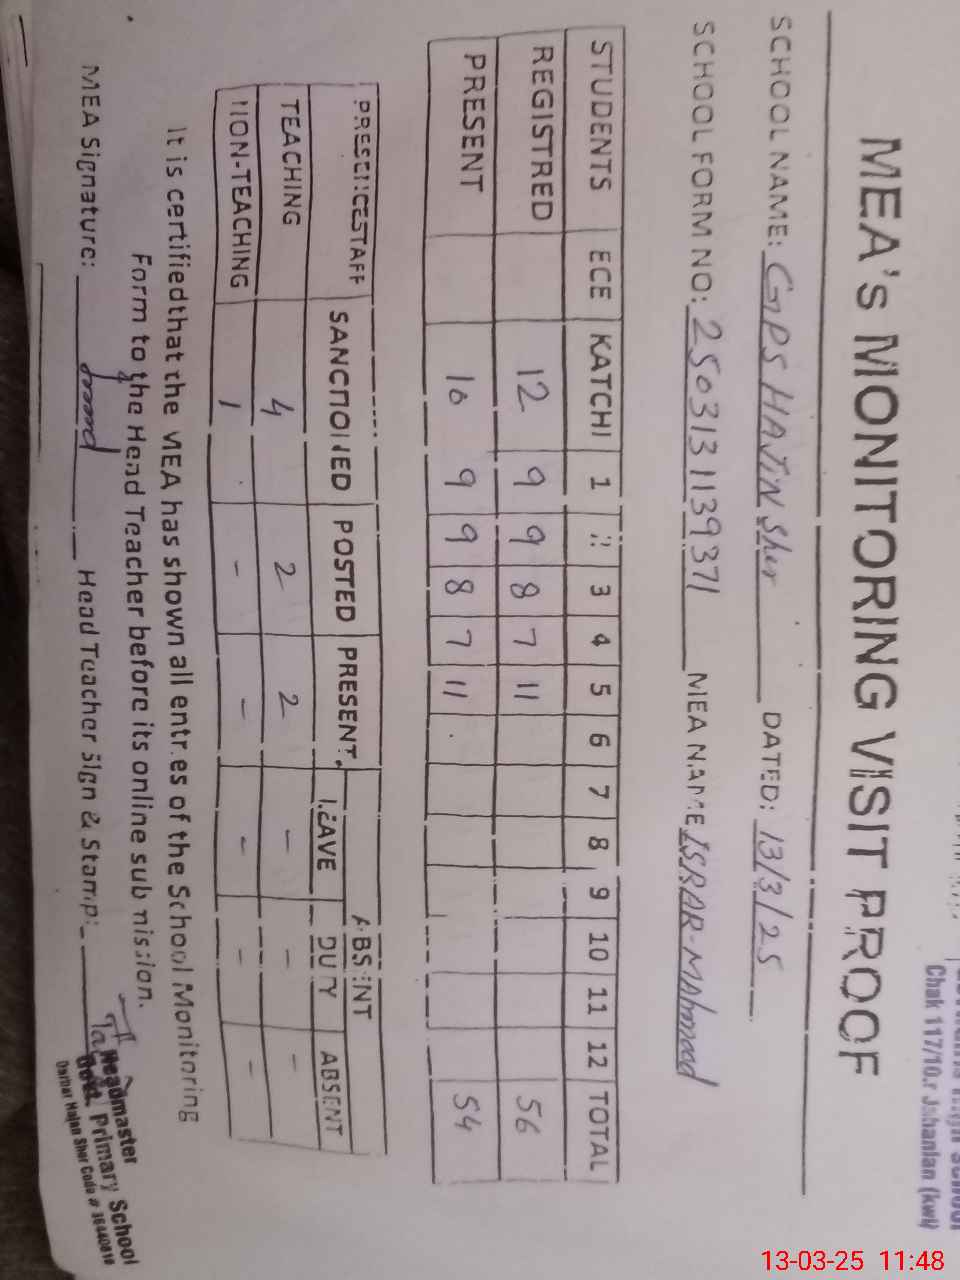 Chak 117/10.r Jahanian (kwl)
MEA's MONITORING VISIT PROOF
SCHOOL NAME: GPS HAJIN Sher DATED: 13/3/25
SCHOOL FORM NO: 2503131139371 MEA NAME ISRAR-Mahmood
STUDENTS ECE KATCHI 1 2 3 4 5 6 7 8 9 10 11 12 TOTAL
REGISTRED 12 9 9 8 7 11 56
PRESENT 10 9 9 8 7 11 54
PRESENCESTAFF SANCTIONED POSTED PRESENT ABSENT
LEAVE DUTY ABSENT
TEACHING 4 2 2 - - -
NON-TEACHING 1 - - - - -
It is certifiedthat the MEA has shown all entries of the School Monitoring
Form to the Head Teacher before its online submission.
MEA Signature: Head Teacher Sign & Stamp:
Headmaster
Govt. Primary School
Sher Code # 36440018
13-03-25 11:48